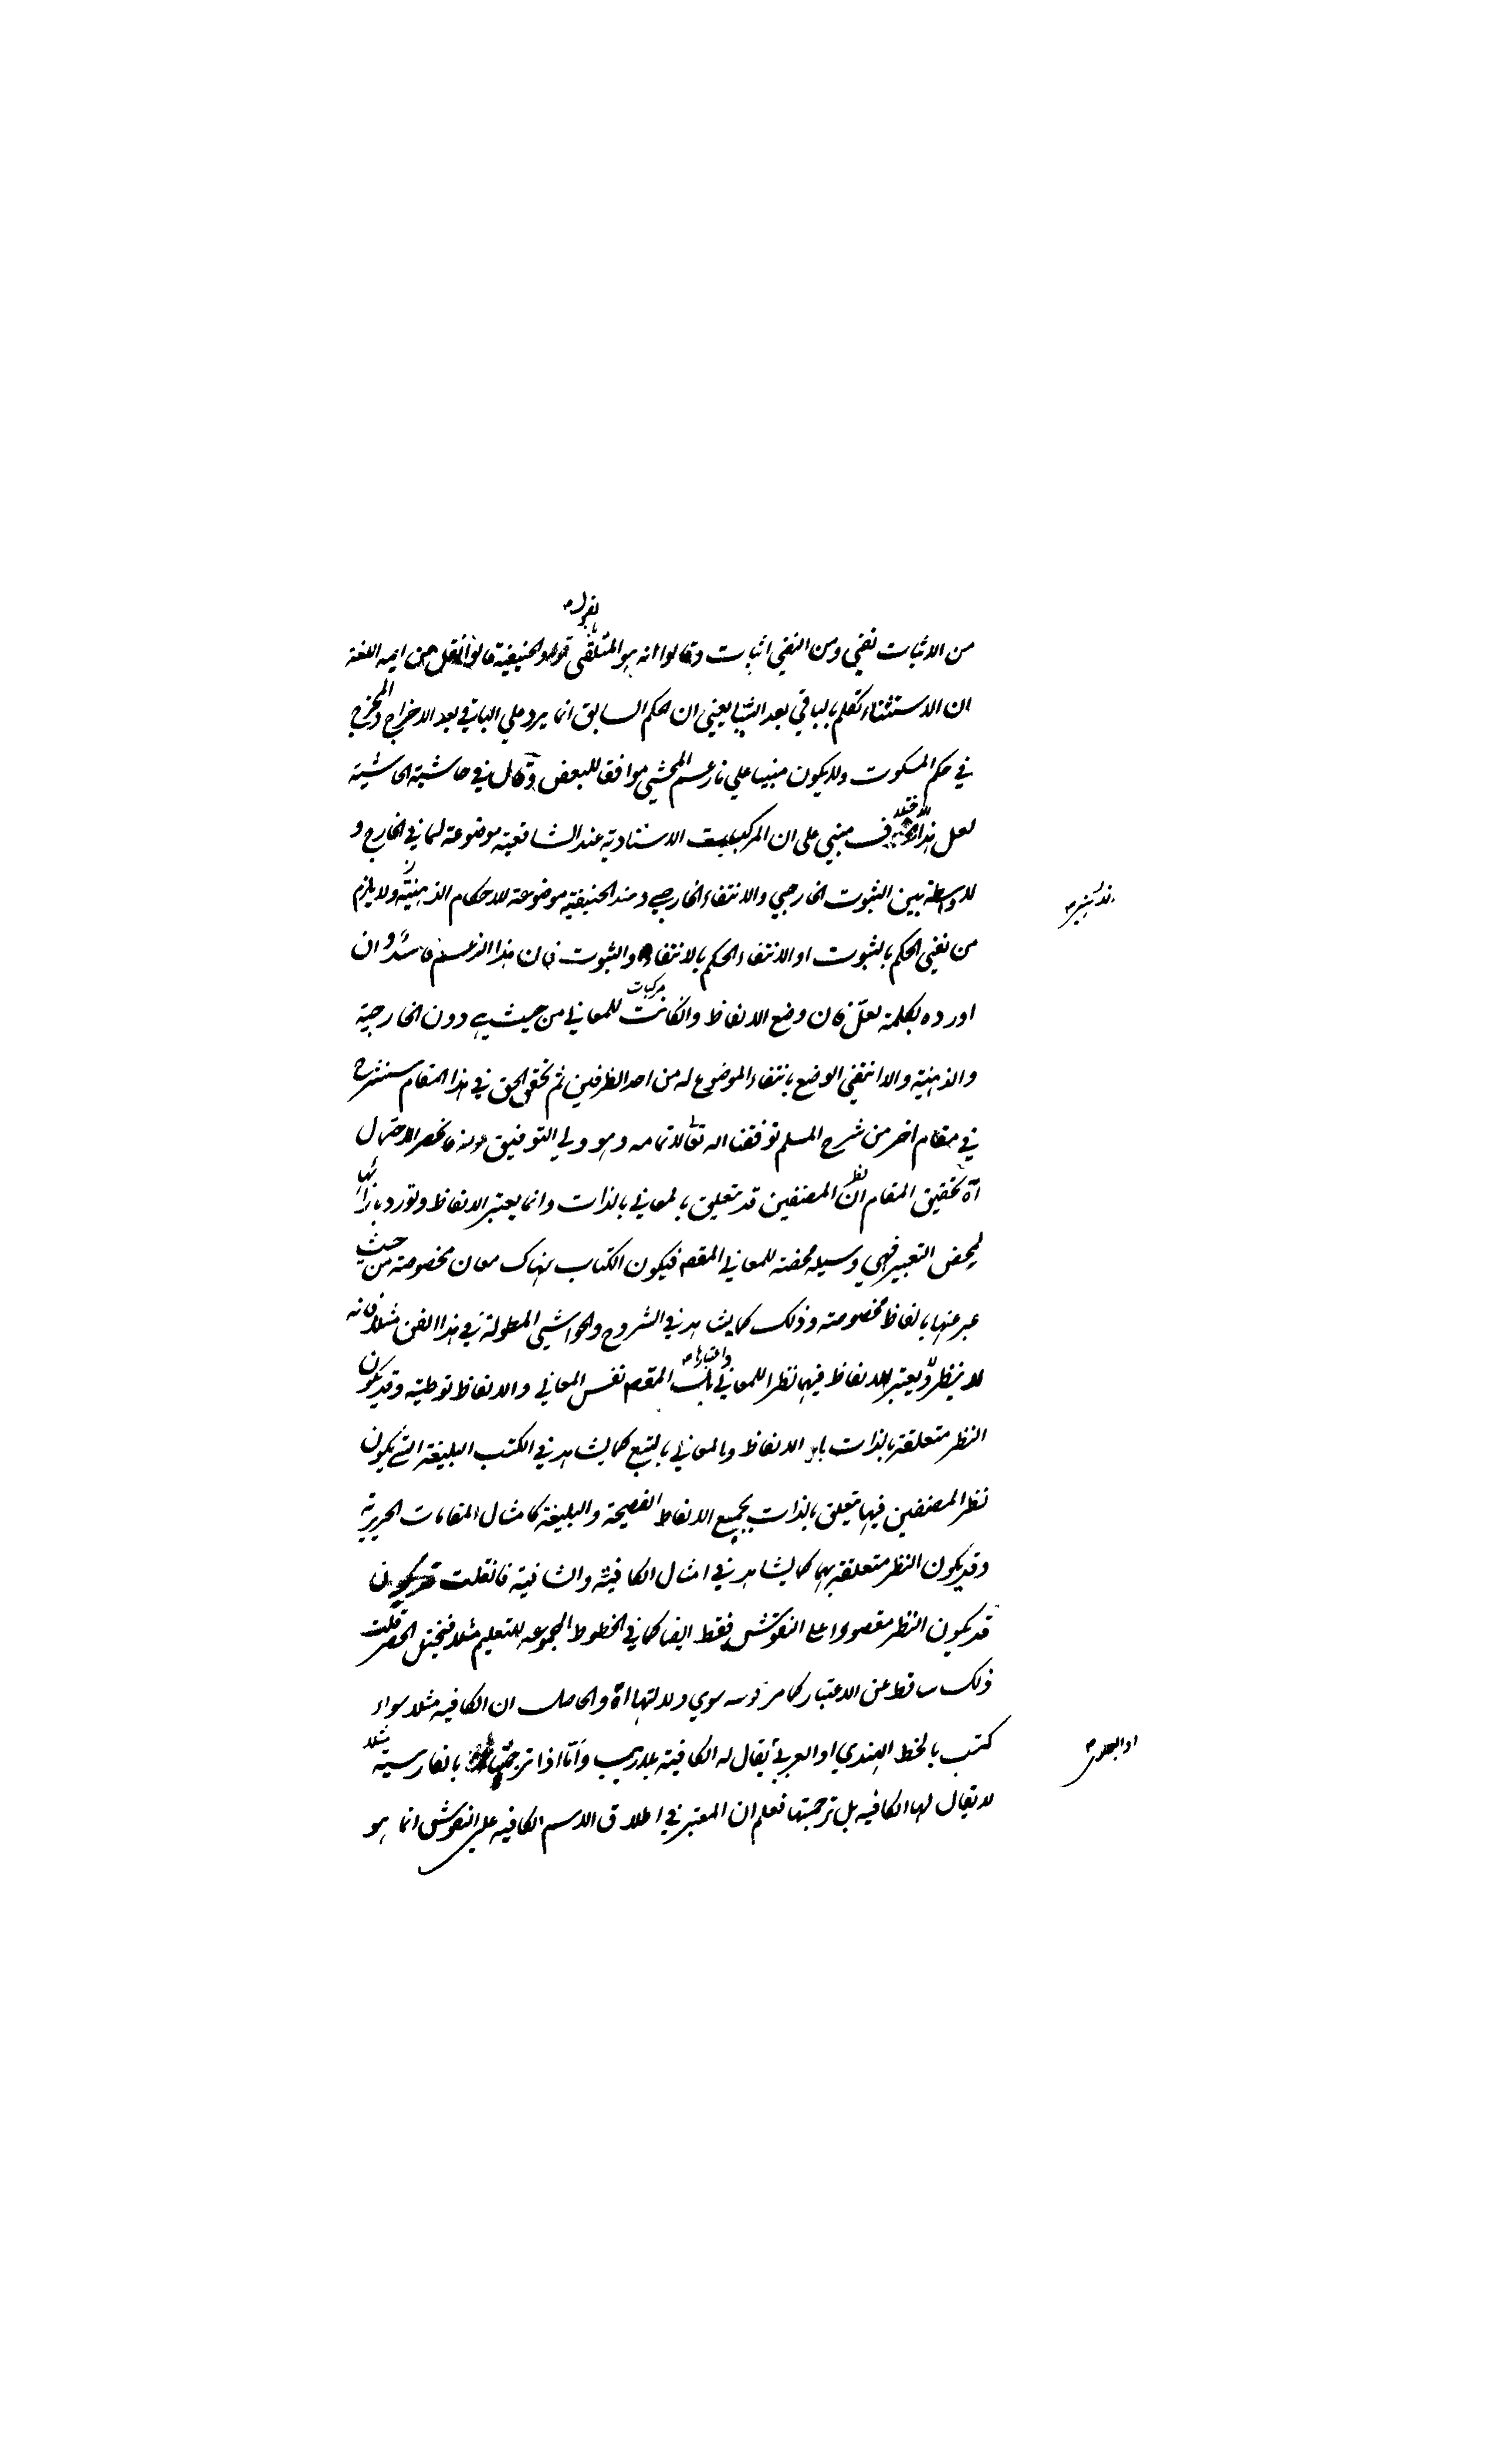 من الاثبات نفي ومن النفي اثبات وقالوا انه هو المتلقى والحنيفية قالوا نقل عن ايمه اللغة
ان الاستثناء تكلم بالباقي بعد الثنيا يعني ان الحكم السابق انما يرد على الباقي بعد الاخراج والمخرج
في حكم المسكوت ولا يكون مبنيا على ما زعم المحشي موافقا للبعض وقال في حاشية الحاشية
لعل هذا الاختلاف مبني على ان المركبات الاسنادية عند الشافعية موضوعة لما في الخارج و
لا واسطة بين الثبوت الخارجي والانتفاء الخارجي وعند الحنيفية موضوعة للاحكام الذهنية ولا يلزم
من نفي الحكم بالثبوت او الانتفاء الحكم بالانتفاء والثبوت فان هذا الزعم فاسد وان
اورده بكلمة لعل فان وضع الالفاظ وان كانت مركبات للمعاني من حيث هي دون الخارجية
والذهنية والا انتفى الوضع بانتفاء الموضوع له من احد الظرفين ثم تحقق الحق في هذا المقام سنشرح
في مقام اخر من شرح المسلم توفقنا الله تعالى لاتمامه وهو ولي التوفيق قوله فانحصر الاحتمال
آه تحقيق المقام ان نظر المصنفين قد يتعلق بالمعاني بالذات وانما يعتبر الالفاظ وتورد بازائها
لمحض التعبير فهي وسيله محضة للمعاني المقصم فيكون الكتاب هناك معان مخصوصة من حيث
عبر عنها بالفاظ مخصوصة وذلك كما يشاهد في الشروح والحواشي المطولة في هذا الفن مثلا فانه
لا ينظر ولا يعتبر الالفاظ فيها نظرا للمعاني واعتبارها بل المقصم نفس المعاني والالفاظ توطئة وقد يكون
النظر متعلقة بالذات الالفاظ وبالمعاني بالتبع كما يشاهد في الكتب البليغة التي يكون
نظر المصنفين فيها يتعلق بالذات بجميع الالفاظ الفصيحة والبليغة كامثال المقامات الحريرية
وقد يكون النظر متعلقة بهما كما يشاهد في امثال الكافية والشافية فان قلت
قد يكون النظر مقصورا على النقوش فقط ايضا كما في الخطوط المجموعه للتعليم مثلا فيختل الحصر قلت
ذلك ساقط عن الاعتبار كما مر قوله سوى دلالتها آه والحاصل ان الكافيه مثلا سواء
كتب بالخط الهندي او العربي يقال له الكافية بلا ريب واما اذا ترجمتها بالفارسية مثلا
لا يقال لها الكافيه بل ترجمتها فعلم ان المعتبر في اطلاق الاسم الكافيه على النقوش انما هو